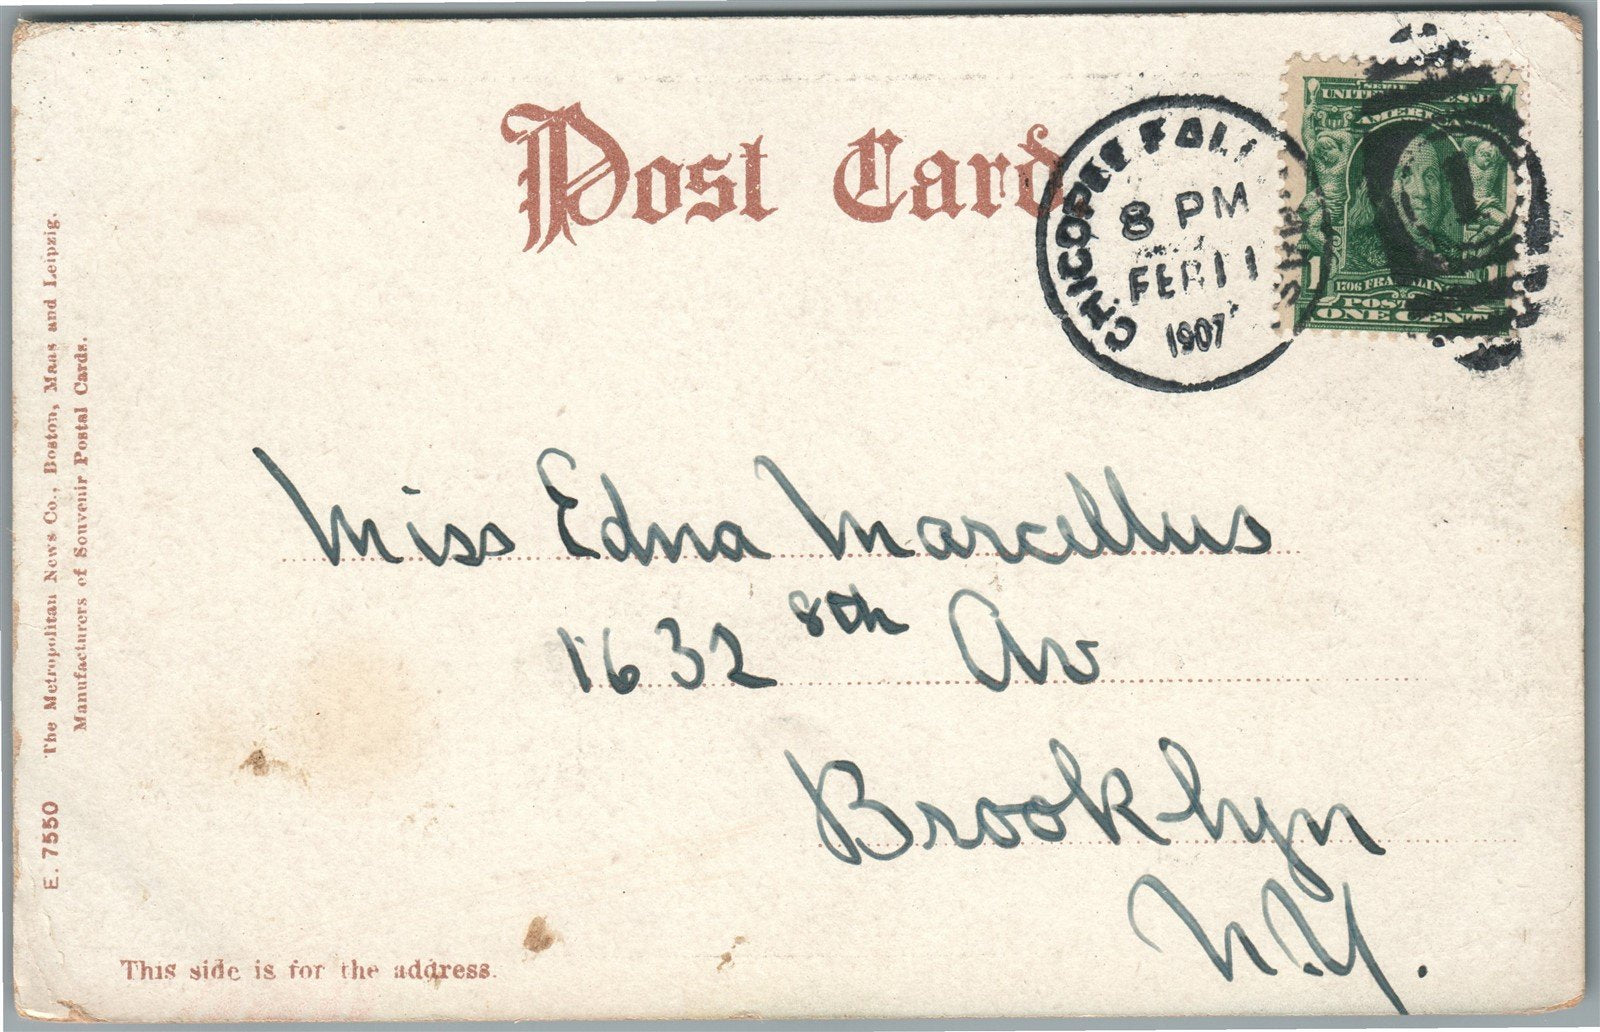 Post Card
CHICOPEE FALLS
8 PM
FEB 11
1907
SERIES 1902
UNITED STATES OF
AMERICA
1706 FRANKLIN
POSTAGE
ONE CENT
Miss Edna Marcellus
1632 8th Av
Brooklyn
N.Y.
E. 7550 The Metropolitan News Co., Boston, Mass and Leipzig.
Manufacturers of Souvenir Postal Cards.
This side is for the address.